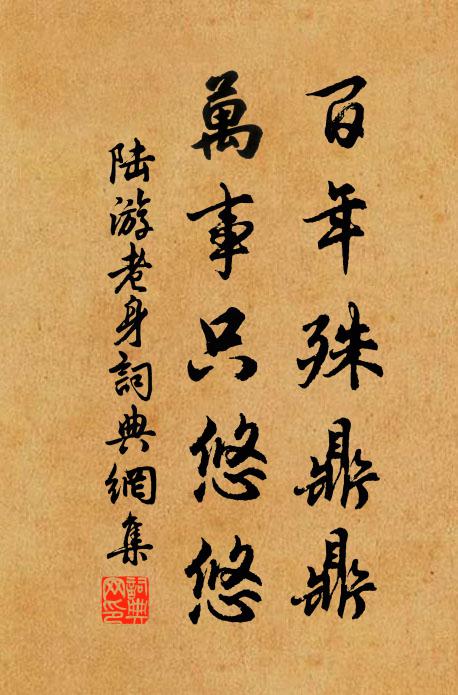 百年殊鼎鼎
萬事只悠悠
陆游老身詞典網集
詞典网印